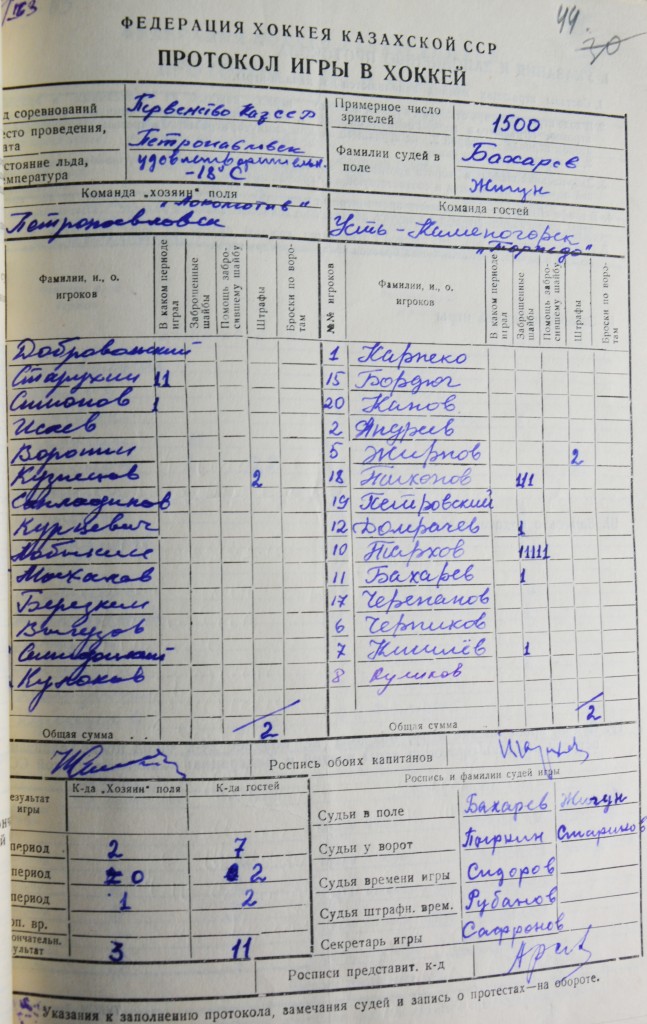 44.
30
ФЕДЕРАЦИЯ ХОККЕЯ КАЗАХСКОЙ ССР
ПРОТОКОЛ ИГРЫ В ХОККЕЙ
д соревнований Первенство КазССР
Примерное число зрителей 1500
есто проведения, ата Петропавловск
стояние льда, емпература удовлетворительн. -18°С
Фамилии судей в поле Бахарев
Жигун
Команда „хозяин" поля „Локомотив"
Петропавловск
Команда гостей
Усть-Каменогорск „Торпедо"
Фамилии, и., о. игроков
В каком периоде играл
Заброшенные шайбы
Помощь забросившему шайбу
Штрафы
Броски по воротам
№№ игроков
Фамилии, и., о. игроков
В каком периоде играл
Заброшенные шайбы
Помощь забросившему шайбу
Штрафы
Броски по воротам
Добровольский 1 Карпеко
Старухин 11 15 Бордюг
Симонов 1 20 Канов
Исаев 2 Андреев
Воронин 5 Жирнов 2
Кузнецов 2 18 Никонов 111
19 Петровский
Куркевич 12 Домрачев 1
10 Тархов 11111
11 Бахарев 1
17 Черепанов
6 Черников
7 Киселёв 1
8 Куликов
Общая сумма . . 2
Общая сумма 2
Роспись обоих капитанов
К-да „Хозяин" поля
К-да гостей
Роспись и фамилии судей игры
езультат игры
Судьи в поле Бахарев Жигун
период 2 7
Судьи у ворот Стариков
период 0 2
Судья времени игры Сидоров
период 1 2
Судья штрафн. врем. Рубанов
оп. вр.
Секретарь игры Сафронов
ончательн. ультат 3 11
Росписи представит. к-д
Указания к заполнению протокола, замечания судей и запись о протестах—на обороте.